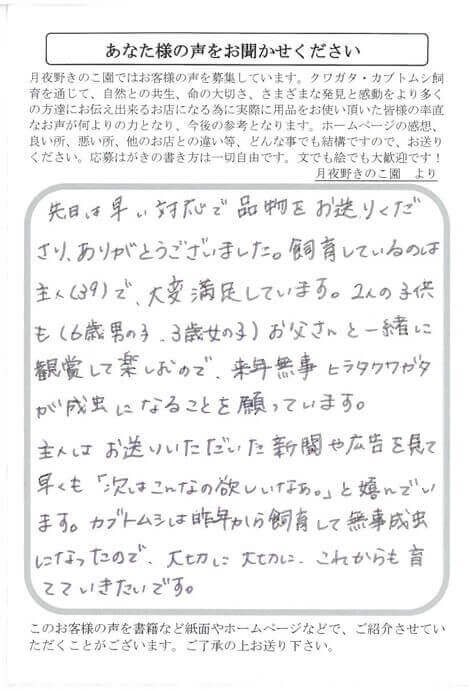 あなた様の声をお聞かせください
月夜野きのこ園ではお客様の声を募集しています。クワガタ・カブトムシ飼
育を通じて、自然との共生、命の大切さ、さまざまな発見と感動をより多く
の方達にお伝え出来るお店になる為に実際に用品をお使い頂いた皆様の率直
なお声が何よりの力となり、今後の参考となります。ホームページの感想、
良い所、悪い所、他のお店との違い等、どんな事でも結構ですので、お送り
ください。応募はがきの書き方は一切自由です。文でも絵でも大歓迎です！
月夜野きのこ園　より
先日は早い対応で品物をお送りくだ
さり、ありがとうございました。飼育しているのは
主人(39)で、大変満足しています。2人の子供
も(6歳男の子、3歳女の子)お父さんと一緒に
観賞して楽しむので、来年無事ヒラタクワガタ
が成虫になることを願っています。
主人はお送りいただいた新聞や広告を見て
早くも「次はこんなの欲しいなぁ。」と嬉んでい
ます。カブトムシは昨年から飼育して無事成虫
になったので、大切に大切に、これからも育
てていきたいです。
このお客様の声を書籍など紙面やホームページなどで、ご紹介させてい
ただくことがございます。ご了承の上お送り下さい。